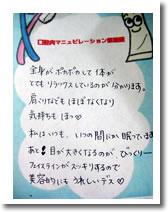 筋肉マニュピレーション
全身がポカポカして体が
とてもリラックスしているのが分かります。
肩こりなどもほぼなくなり
気持ちも ほっ♡
私はいつも、いつの間にか眠っています
あと！目が大きくなるのが びっくりー
フェイスラインがスッキリするので
美容的にも うれしいデス♡